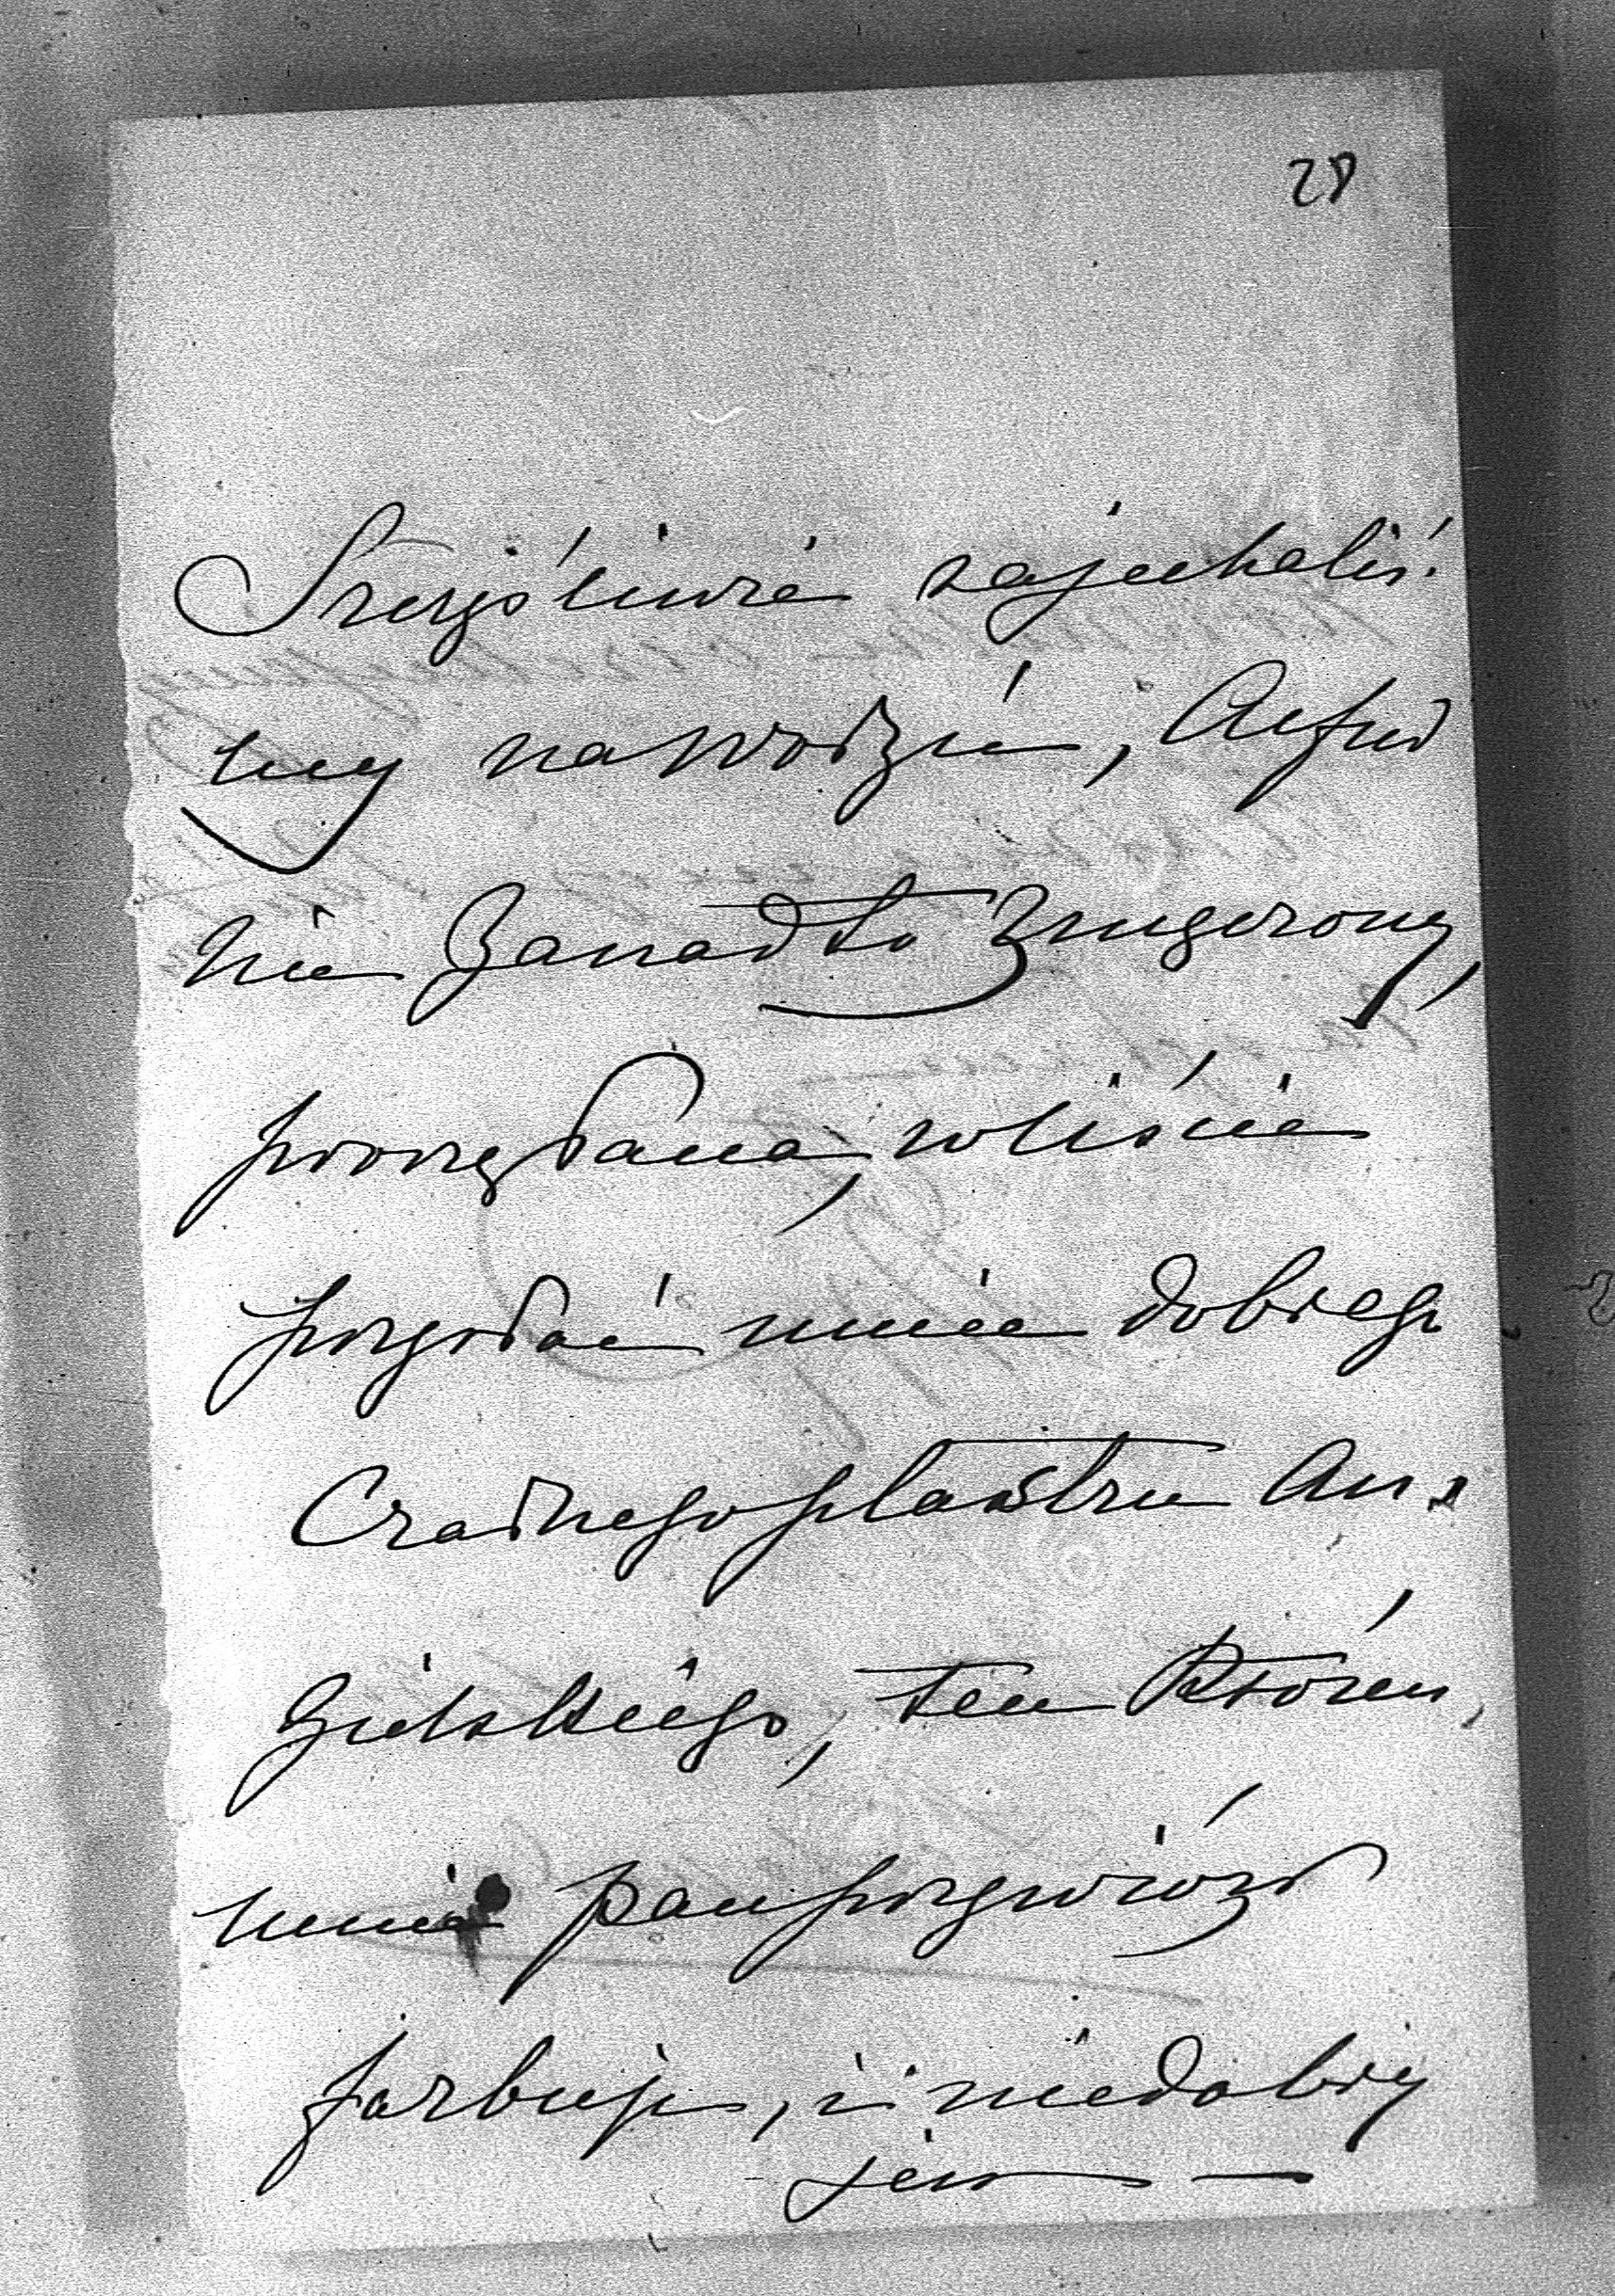 28
Szczęśliwie zajechaliś:
my na wodzie, Alfred
nie zanadto zmęczony,
proszę Pana, w liście
przysłać mnie dobrego
Czarnego plastru An:
gielskiego, ten któren,
mnie pan przywiózł
farbuje, i niedobry
jest —